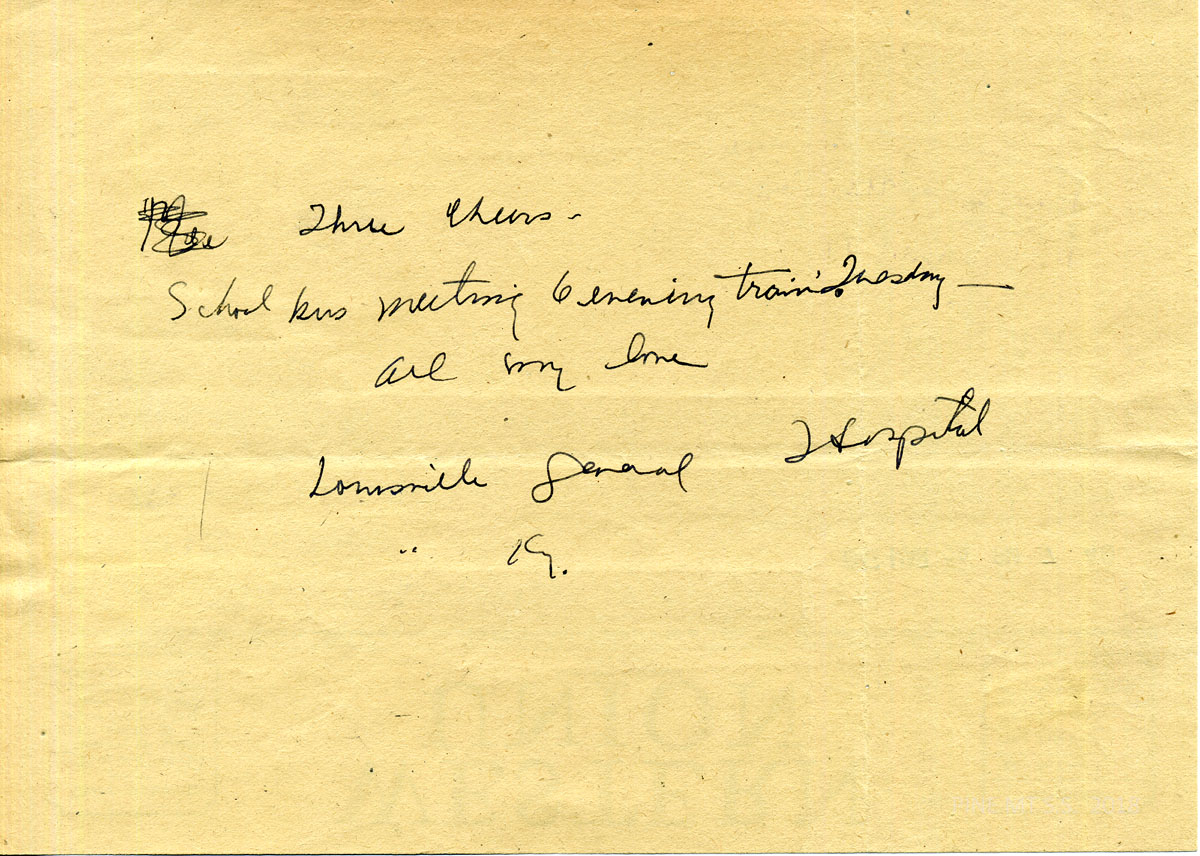 Three Cheers -
School bus meeting 6 evening train Tuesday —
all my love
Louisville General Hospital
" Ky.